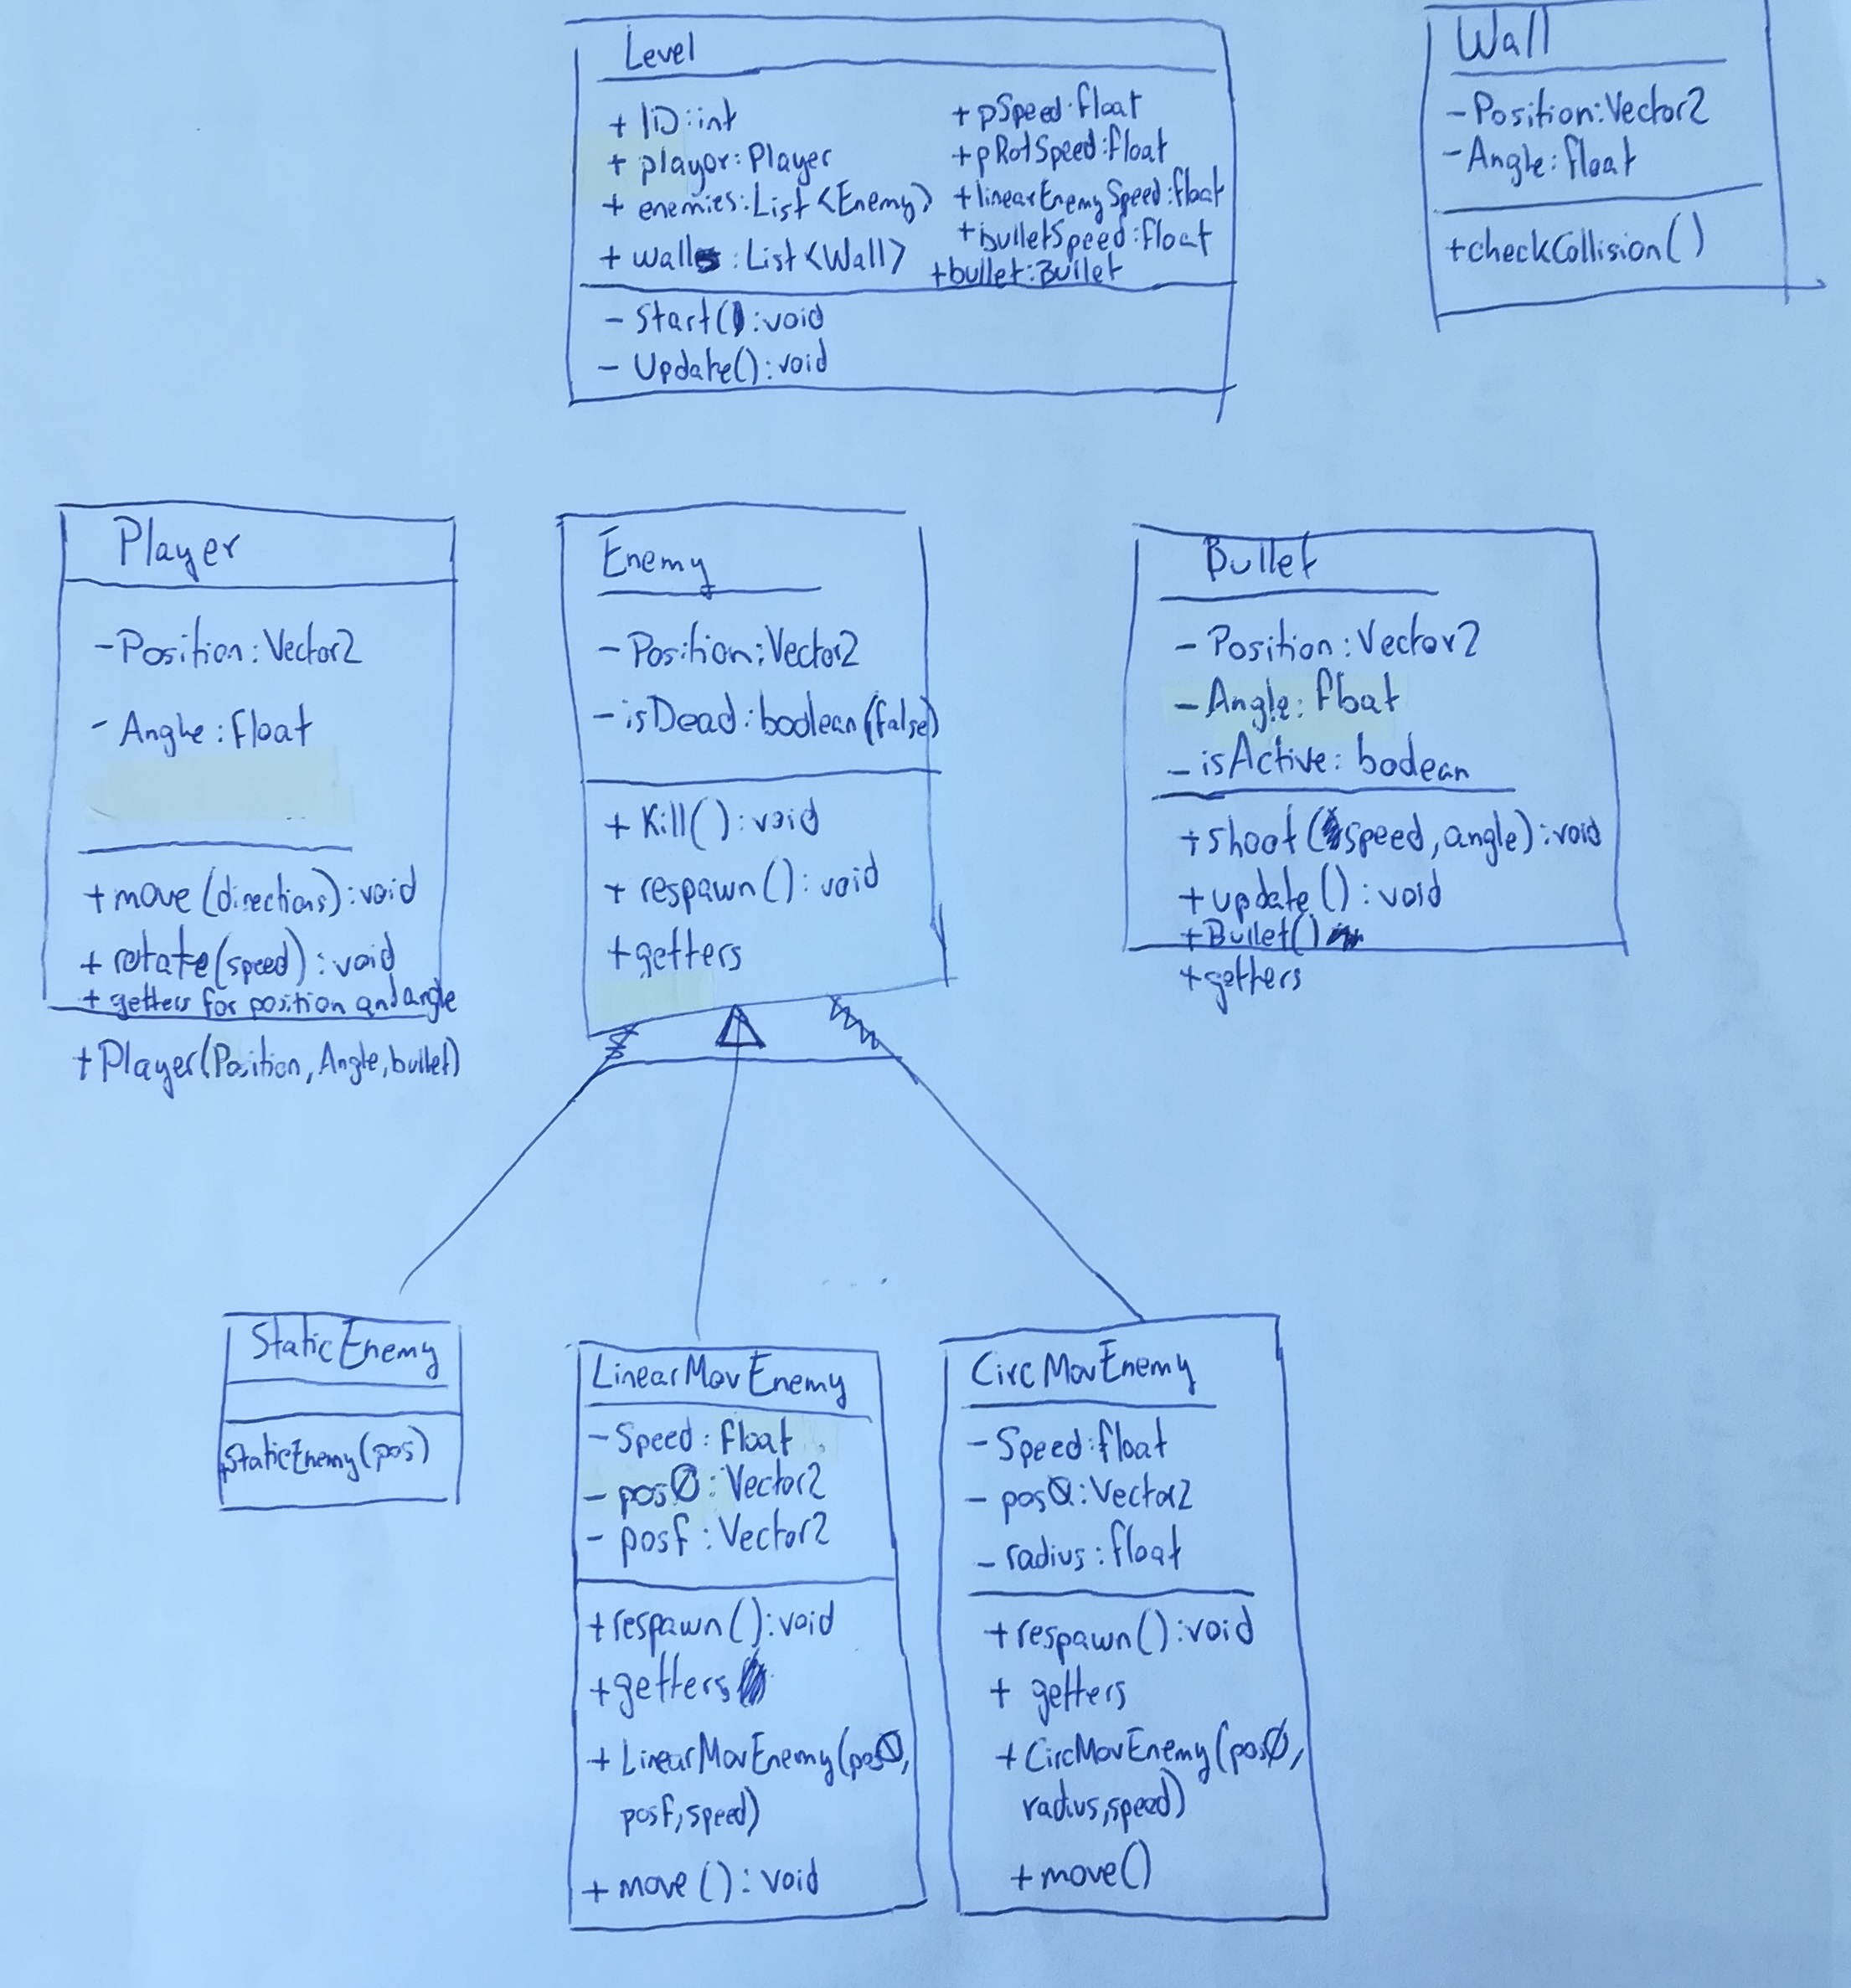 Level
+ ID:int
+ player:Player
+ enemies:List<Enemy>
+ walls:List<Wall>
+ pSpeed:float
+ pRotSpeed:float
+ linearEnemySpeed:float
+ bulletSpeed:float
+ bullet:Bullet
- Start():void
- Update():void
Wall
- Position:Vector2
- Angle:float
+ checkCollision()
Player
- Position:Vector2
- Angle:float
+ move(directions):void
+ rotate(speed):void
+ getters for position and angle
+ Player(Position, Angle, bullet)
Enemy
- Position:Vector2
- isDead:boolean(false)
+ Kill():void
+ respawn():void
+ getters
Bullet
- Position:Vector2
- Angle:float
- isActive:boolean
+ shoot(speed, angle):void
+ update():void
+ Bullet()
+ getters
StaticEnemy
+ StaticEnemy(pos)
LinearMovEnemy
- Speed:float
- pos0:Vector2
- posf:Vector2
+ respawn():void
+ getters
+ LinearMovEnemy(pos0,
posf, speed)
+ move():void
CircMovEnemy
- Speed:float
- pos0:Vector2
- radius:float
+ respawn():void
+ getters
+ CircMovEnemy(pos0,
radius, speed)
+ move()